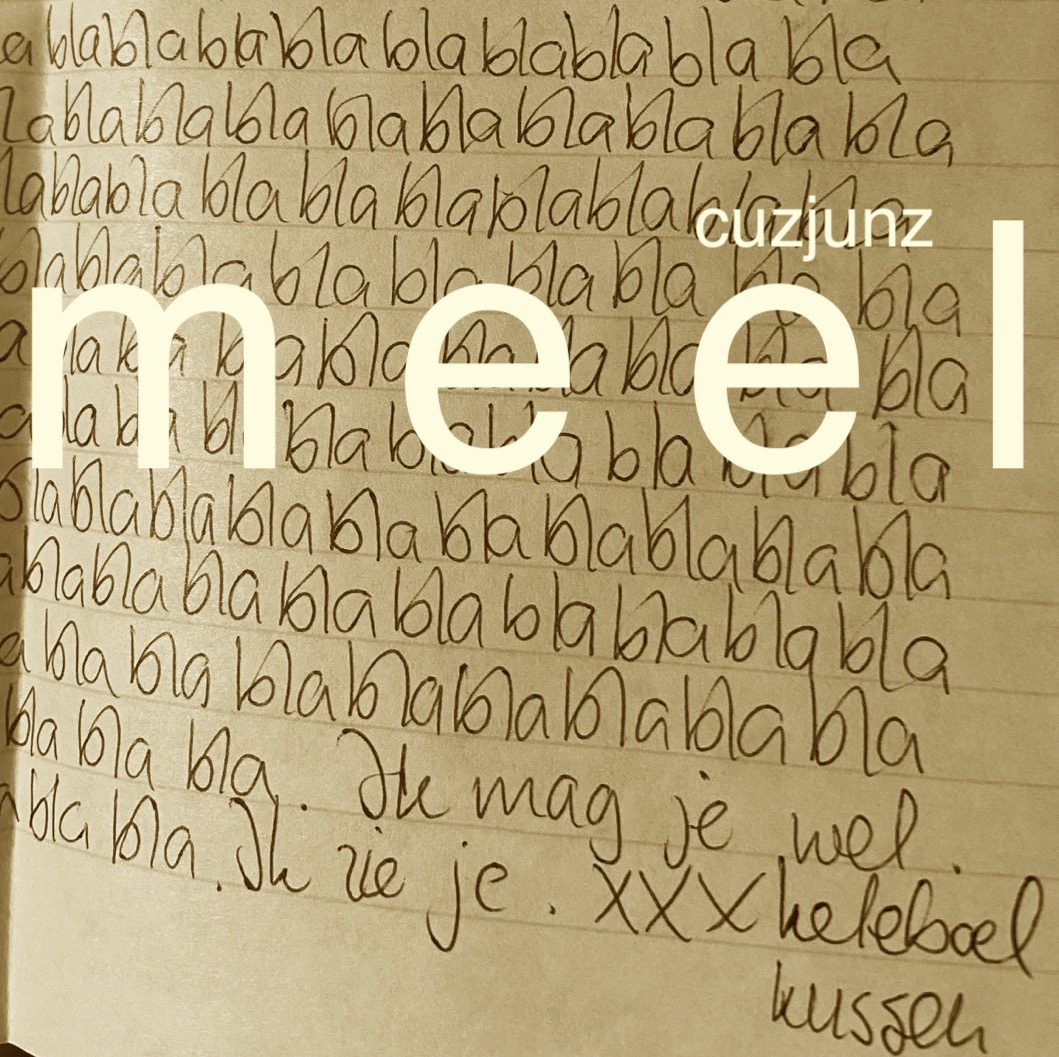 a bla bla bla bla bla bla bla bla bla
la bla bla bla bla bla bla bla bla bla
la bla bla bla bla bla bla bla bla bla
cuzjunz
bla bla bla bla bla bla bla bla
meel
a bla bla bla bla bla bla
bla bla bla bla bla
bla bla bla bla bla bla bla bla bla bla
a bla bla bla bla bla bla bla bla bla
a bla bla bla bla bla bla bla bla
bla bla bla. Ik mag je wel.
a bla bla. Ik zie je. XXX heleboel
kussen